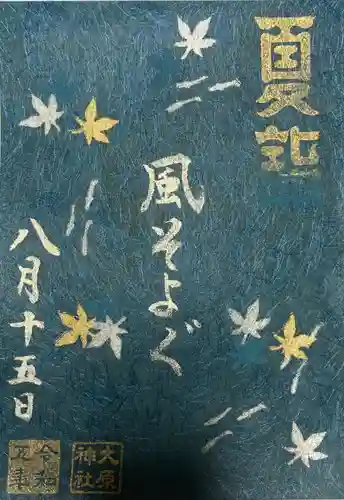 夏詣
風そよぐ
八月十五日
大原
神社
令和